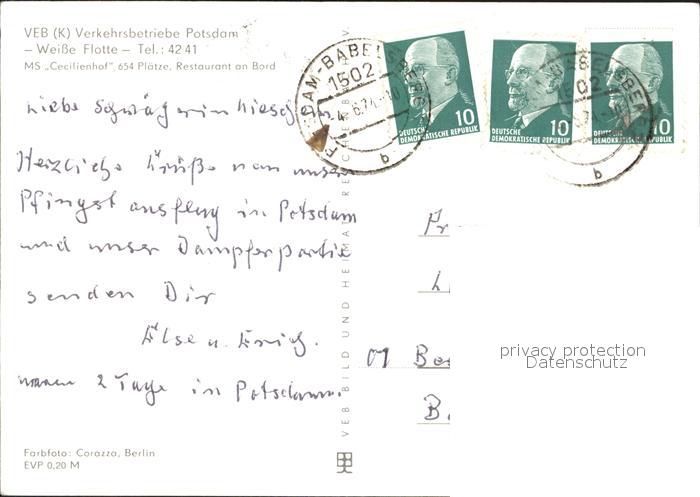 VEB (K) Verkehrsbetriebe Potsdam
– Weiße Flotte – Tel.: 42 41
MS „Cecilienhof", 654 Plätze, Restaurant an Bord
Liebe Schwägerin
Herzliche Grüße von unser
Pfingstausflug in Potsdam
und unser Dampferpartie
senden Dir
Else u. Erich.
waren 2 Tage in Potsdam.
Farbfoto: Corazza, Berlin
EVP 0,20 M
VEB BILD UND HEIMAT REICHENBACH
POTSDAM-BABELSBERG
1502
b
10
DEUTSCHE
DEMOKRATISCHE REPUBLIK
10
DEUTSCHE
DEMOKRATISCHE REPUBLIK
10
DEUTSCHE
DEMOKRATISCHE REPUBLIK
1502
b
Fr
L
01 Be
B.
privacy protection
Datenschutz